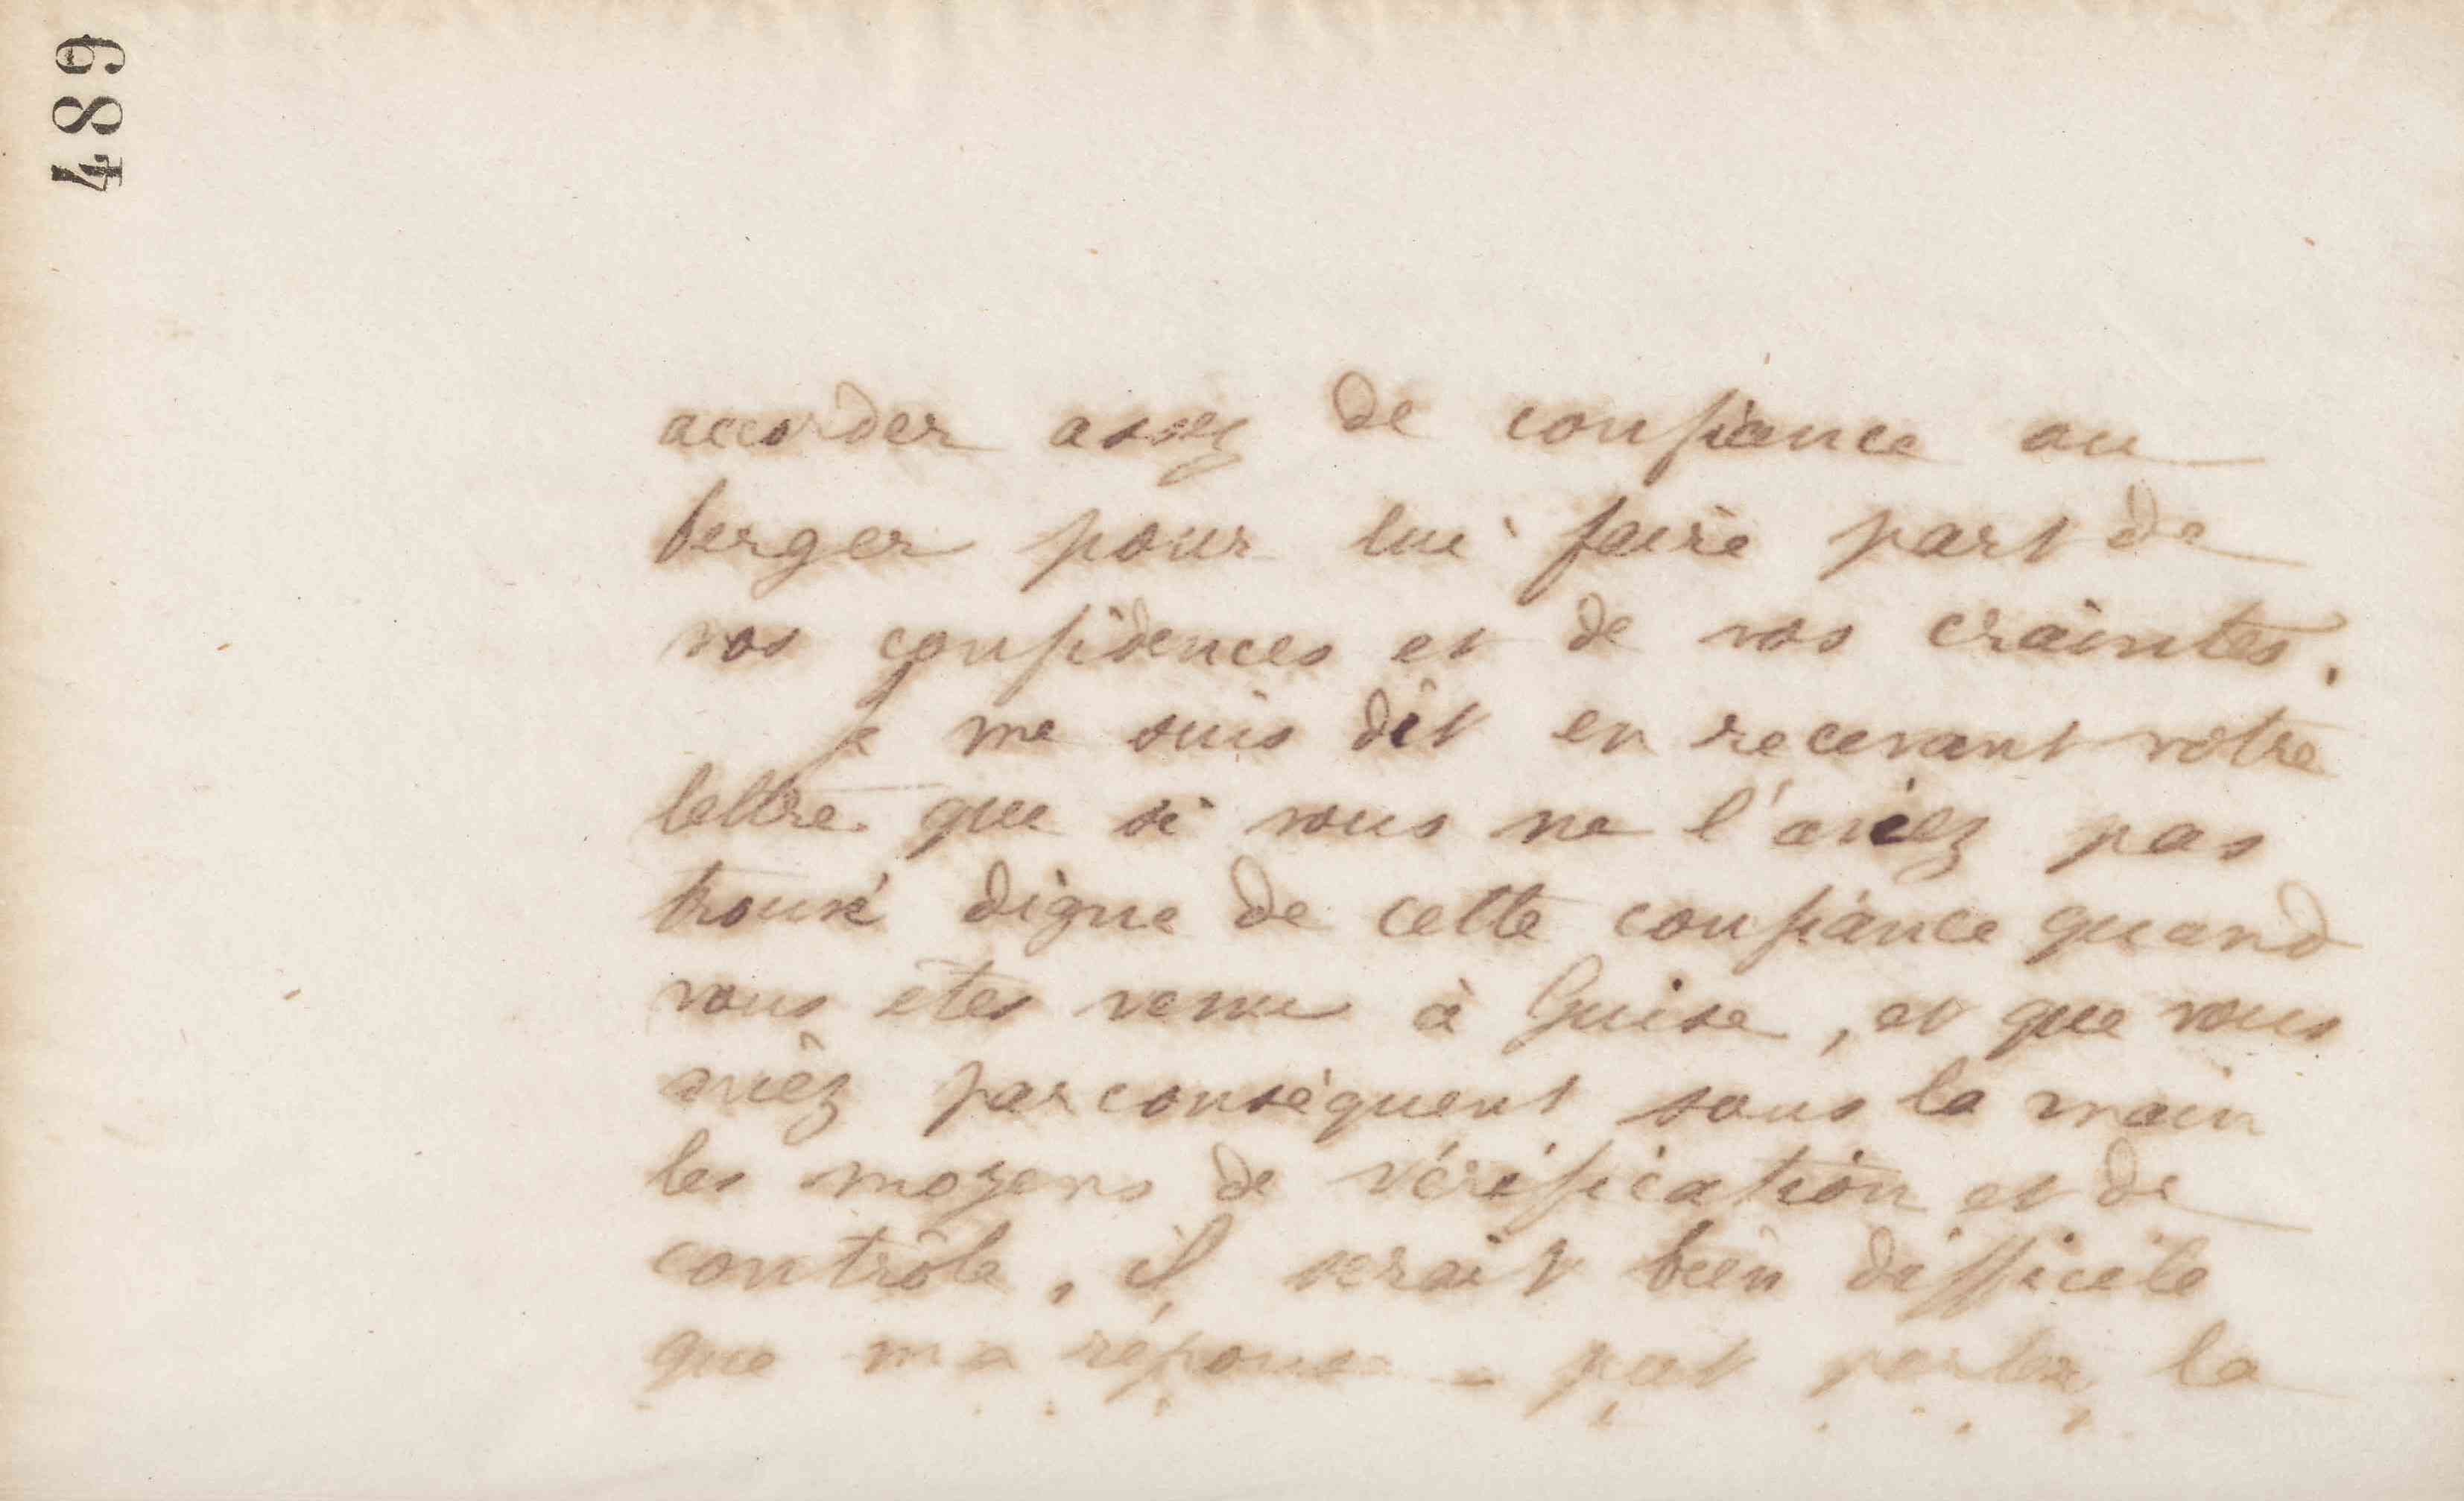 489
accorder assez de confiance au
berger pour lui faire part de
vos confidences et de vos craintes.
Je me suis dit en recevant votre
lettre que si vous ne l'aviez pas
trouvé digne de cette confiance quand
vous etes venu à Guise, et que vous
aviez par conséquent sous la main
les moyens de vérification et de
contrôle, il serait bien difficile
que ma réponse put porter la